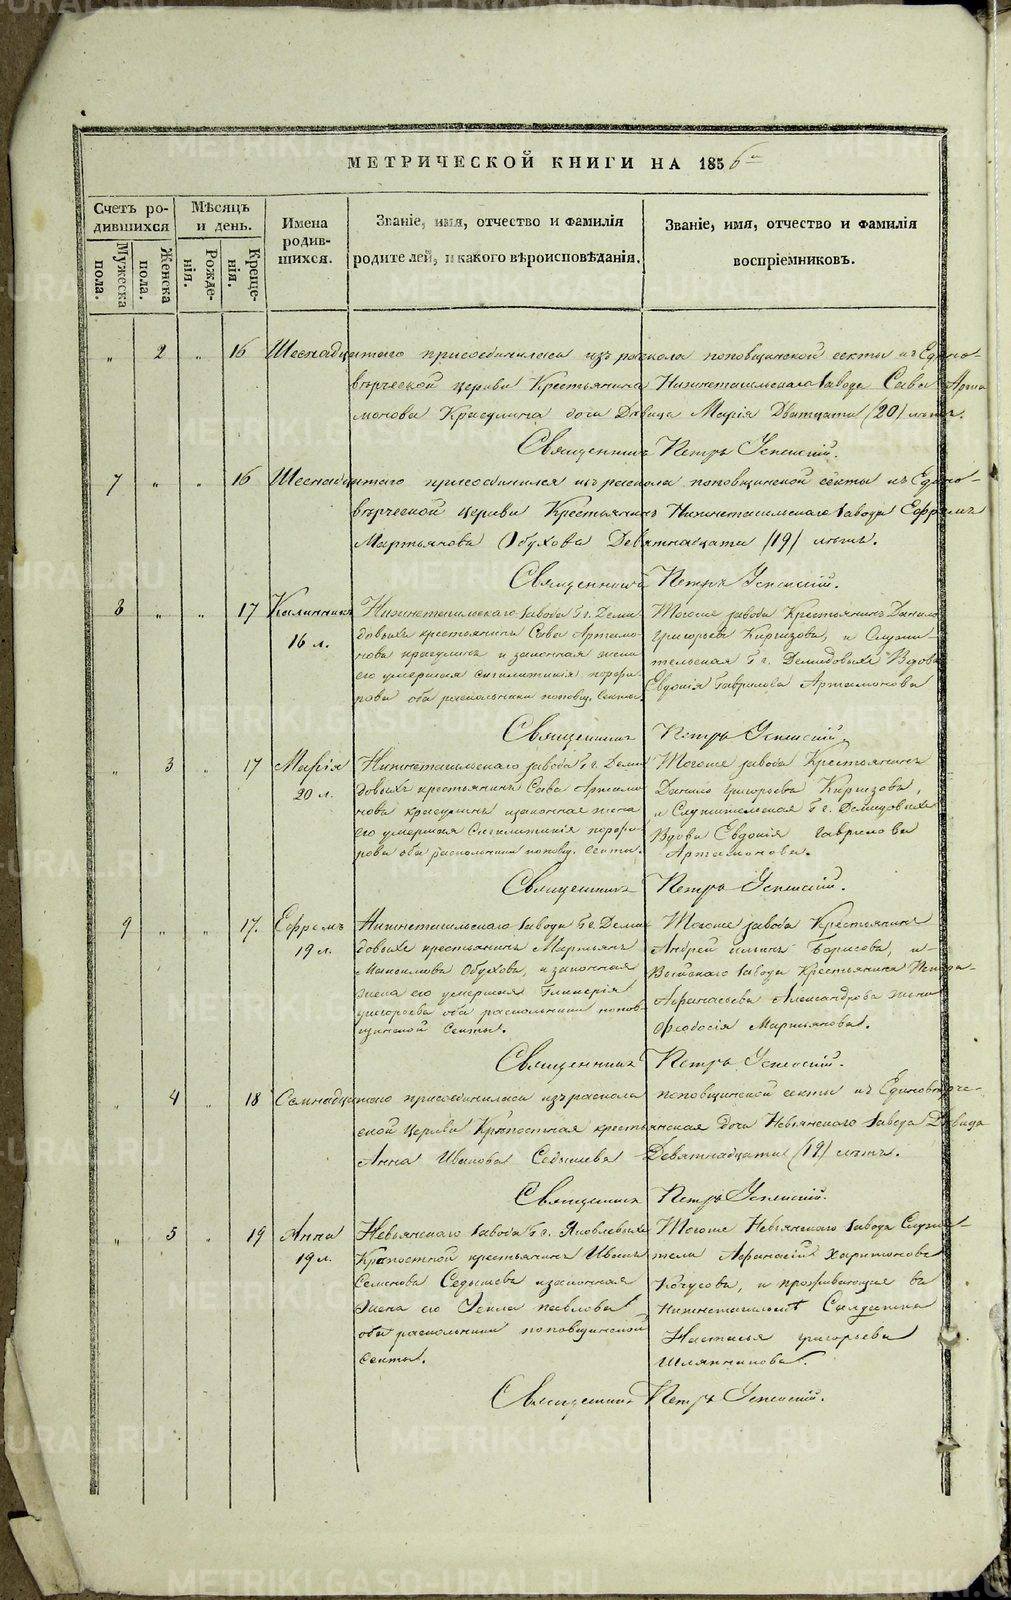 МЕТРИЧЕСКОЙ КНИГИ НА 1856й
Счетъ ро-
дившихся
Мужеска
пола.
Женска
пола.
Мѣсяцъ
и день.
Рожде-
нія.
Креще-
нія.
Имена
родив-
шихся.
Званіе, имя, отчество и фамилія
родителей, и какого вѣроисповѣданія.
Званіе, имя, отчество и фамилія
воспріемниковъ.
" 2 " 16 Шеснадцатаго присоединилась изъ раскола поповщинской секты къ Едино-
вѣрческой церкви Крестьянина Нижнетагильскаго завода Савы Арта
монова Красулина дочь Девица Марія Дватцати (20) лѣтъ.
Священникъ Петръ Успенскій.
7 " " 16 Шеснадцатаго присоединился изъ раскола поповщинской секты къ Едино-
вѣрческой церкви Крестьянинъ Нижнетагильскаго завода Ефремъ
Мартьянова Обухова Девятнадцати (19) лѣтъ.
Священникъ Петръ Успенскій.
8 " " 17 Калинникъ
16 л.
Нижнетагильскаго завода Гг. Деми
довыхъ крестьянинъ Сава Артамо
нова красулинъ и законная жена
его умершая Сигклитикія порфи
рова оба раскольники поповщ. Секты.
Тогоже завода Крестьянинъ Данило
григорьева Киргизова, и Служи-
тельская Гг. Демидовыхъ Вдова
Евдокія Гаврилова Артамонова
Священникъ Петръ Успенскій.
" 3 " 17 Марія
20 л.
Нижнетагильскаго завода Гг. Деми
довыхъ крестьянинъ Сава Артамо
нова красулинъ изаконная жена
его умершая Сигклитикія порфи
рова оба раскольники поповщ. Секты.
Тогоже завода Крестьянинъ
Данило григорьева Киргизова,
и Служительская Гг. Демидовыхъ
Вдова Евдокія Гаврилова
Артамонова.
Священникъ Петръ Успенскій.
9 " " 17. Ефремъ
19 л.
Нижнетагильскаго завода Гг. Деми
довыхъ крестьянинъ Мартьянъ
Максимова Обухова, и законная
жена его умершая Гликерія
григорьева оба раскольники попов-
щинской Секты.
Тогоже завода Крестьянинъ
Андрей ильинъ Борисова, и
Выйскаго завода Крестьянина Петра
Афанасьева Александрова жена
Феодосія Мартьянова.
Священникъ Петръ Успенскій.
" 4 " 18 Семнадцатаго присоединилась изъ раскола поповщинской секты къ Единовѣрче-
ской церкви Крѣпостная крестьянская дочь Невьянскаго завода Девица
Анна Иванова Седышева Девятнадцати (19) лѣтъ.
Священникъ Петръ Успенскій.
" 5 " 19 Анна
19 л.
Невьянскаго завода Гг. Яковлевыхъ
Крѣпостной крестьянинъ Иванъ
Семенова Седышева изаконная
жена его Текла павлова
оба раскольники поповщинской
Секты.
Тогоже Невьянскаго завода Служи-
тель Афанасій Харитонова
и проживающая въ
Нижнетагильскѣ Солдатка
Настасья григорьева
Шляпникова.
Священникъ Петръ Успенскій.
METRIKI.GASO-URAL.RU